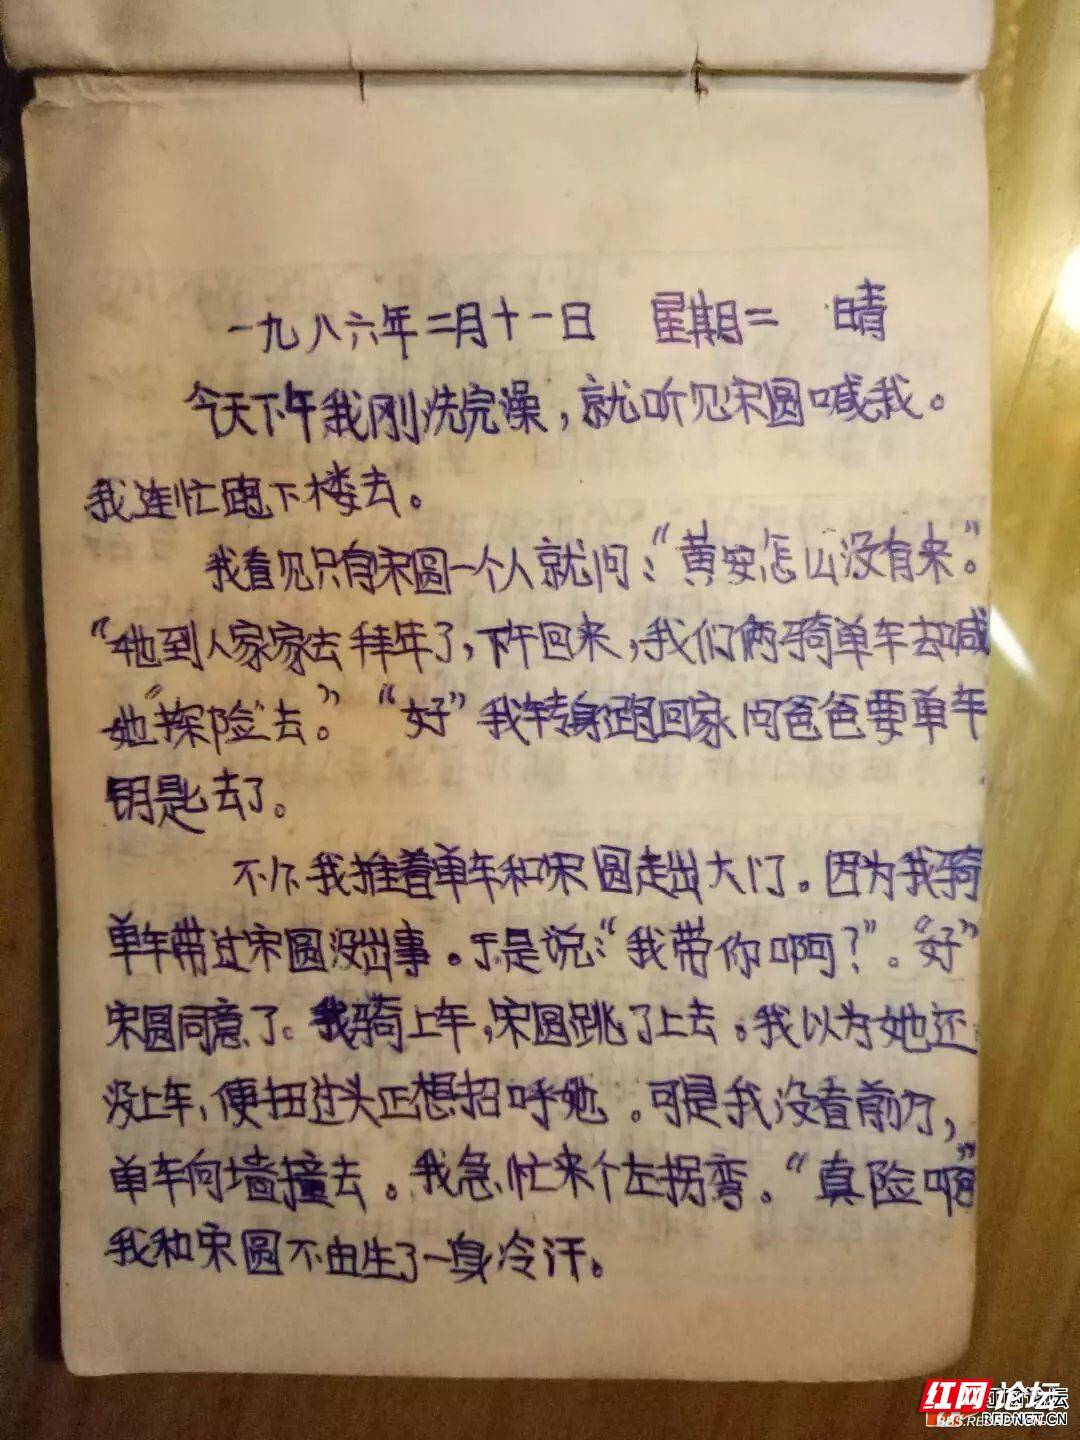 一九八六年二月十一日 星期二 晴
今天下午我刚洗完澡，就听见宋圆喊我。
我连忙跑下楼去。
我看见只有宋圆一个人就问：“黄安怎么没有来”。
“她到人家家去拜年了，下午回来，我们俩骑单车去喊
她“探险”去。”“好”我转身跑回家问爸爸要单车
钥匙去了。
我推着单车和宋圆走出大门。因为我骑
单车带过宋圆没出事。于是说：“我带你啊？”。“好”
宋圆同意了。我骑上车，宋圆跳了上去。我以为她还
没上车，便扭过头正想招呼她。可是我没看前方，
单车向墙撞去。我急忙来个左拐弯。“真险啊”
我和宋圆不由生了一身冷汗。
红网论坛
BBS.REDNET.CN